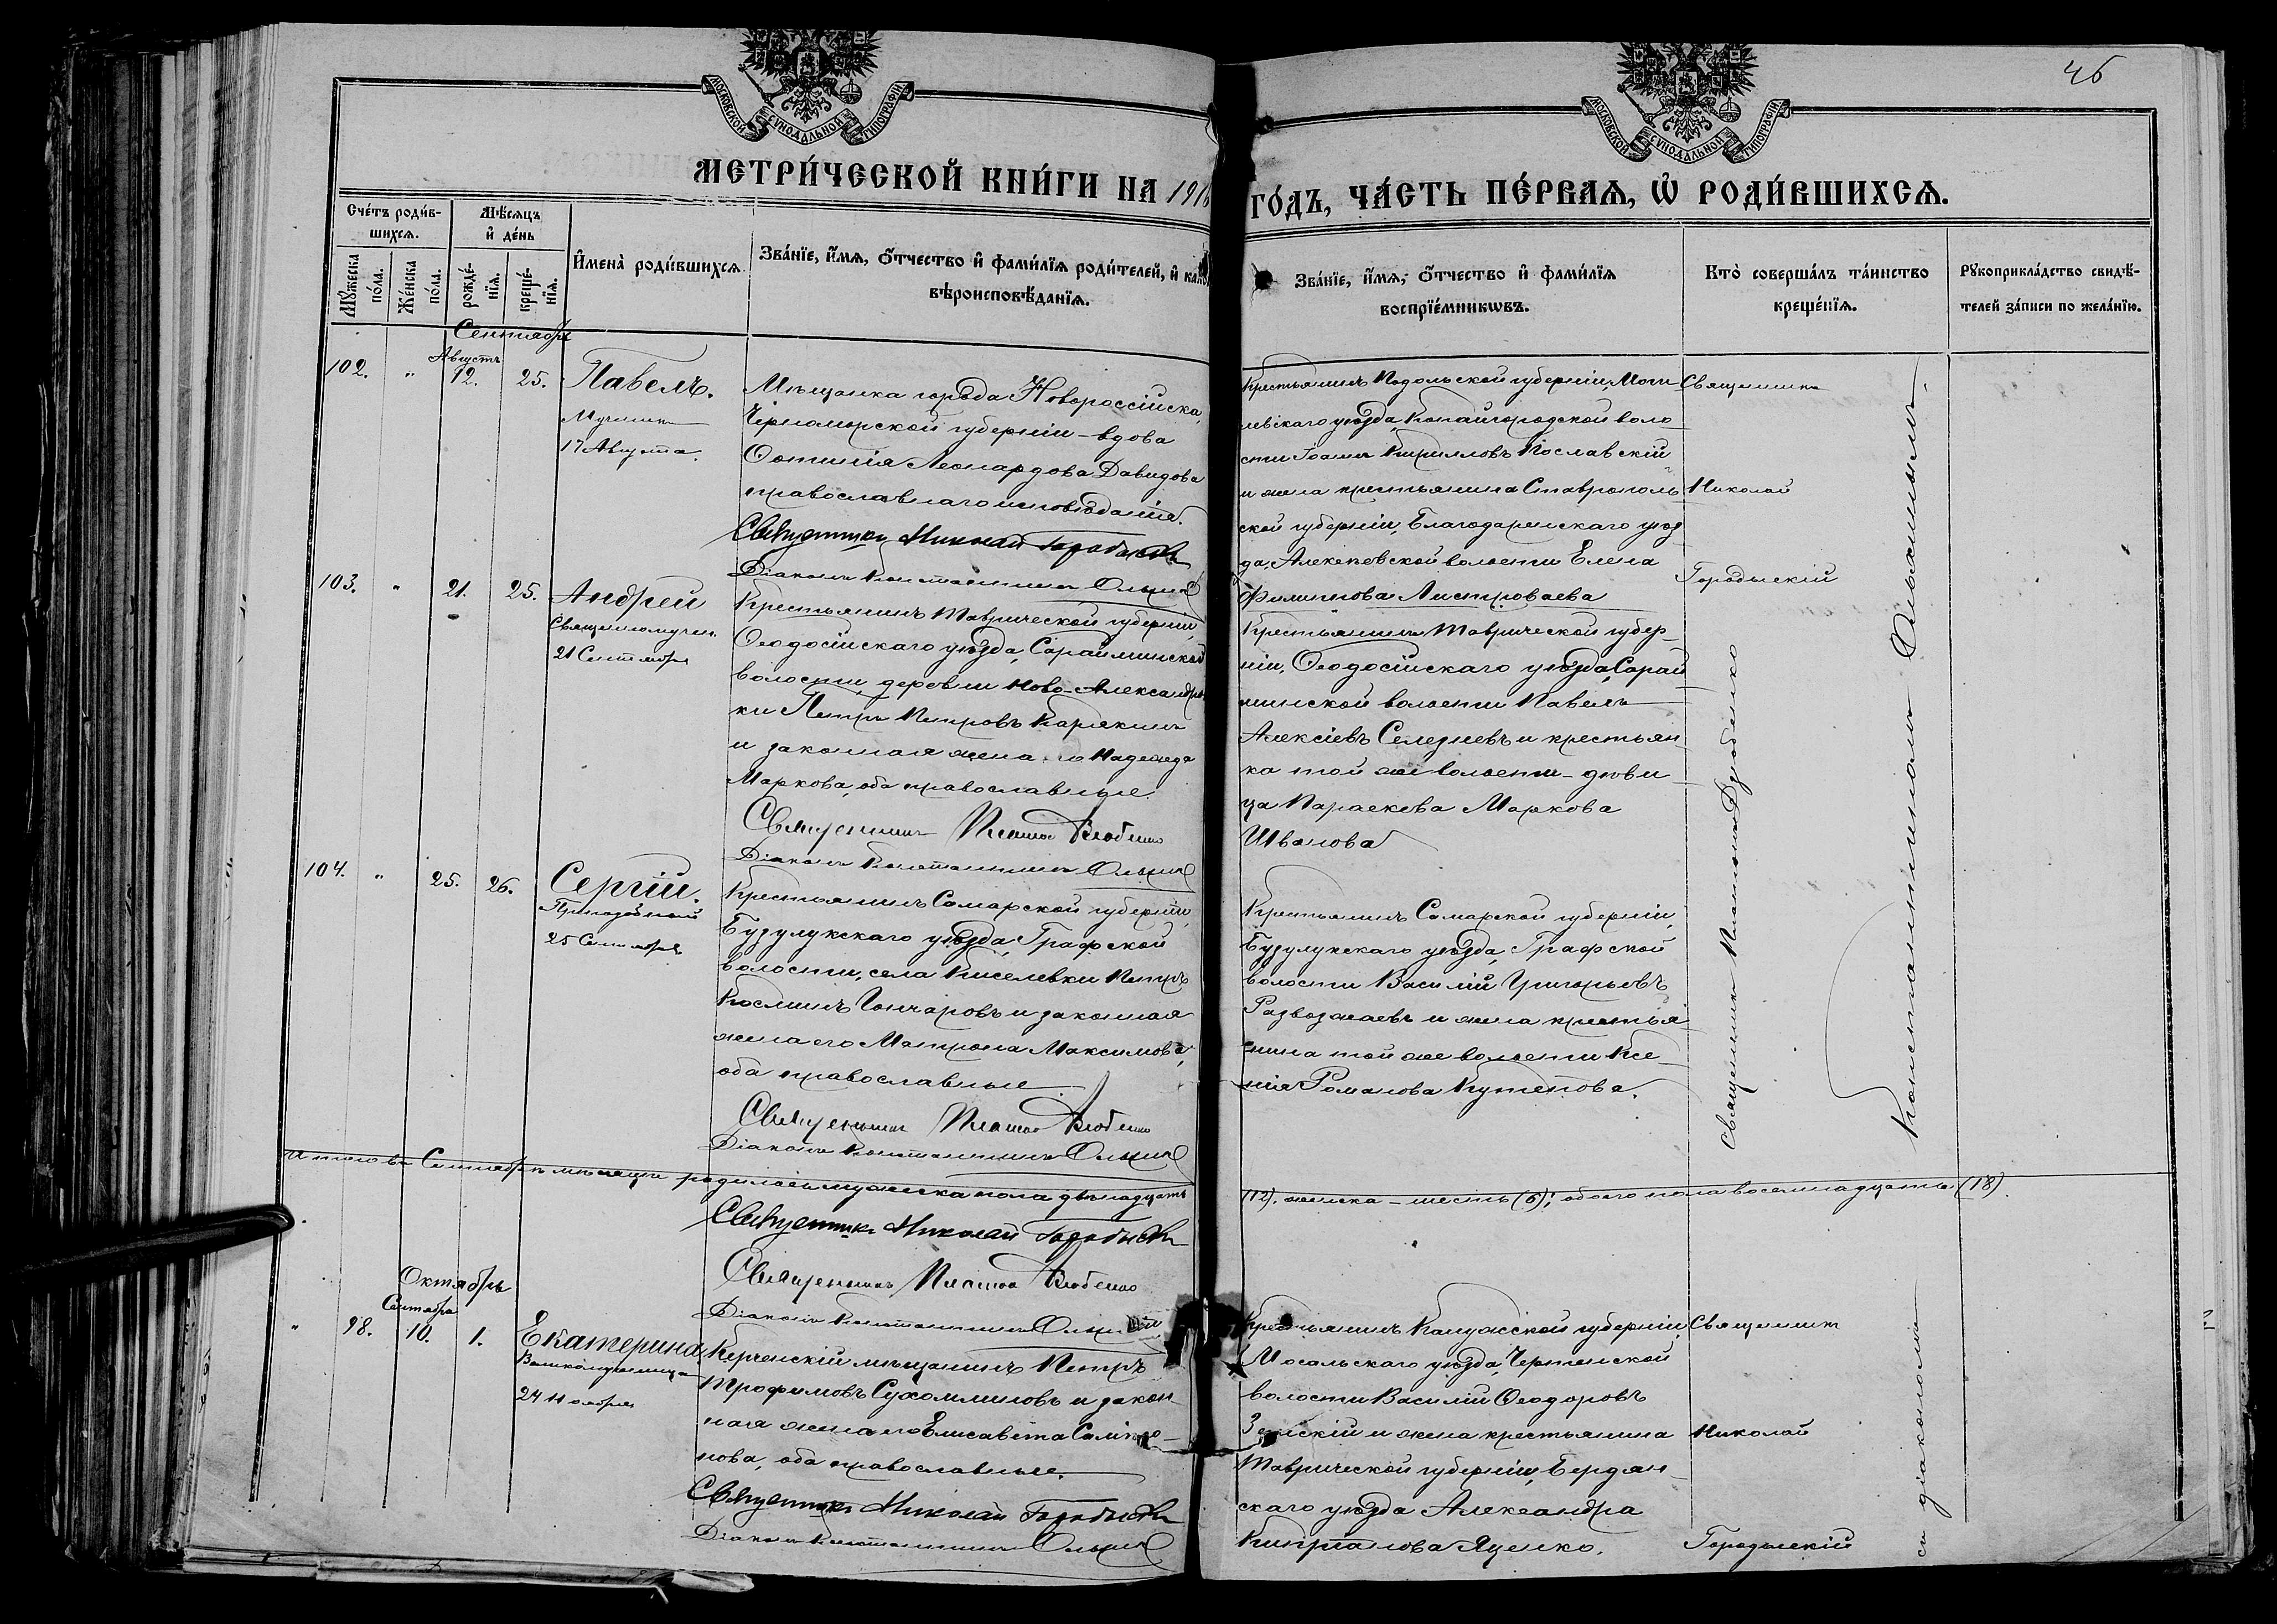 46
МОСКОВСКОЙ СУНОДАЛЬНОЙ ТИПОГРАФІИ
МОСКОВСКОЙ СУНОДАЛЬНОЙ ТИПОГРАФІИ
МЕТРИ́ЧЕСКОЙ КНИ́ГИ НА 1916
ГО́ДЪ, ЧА́СТЬ ПЕ́РВАѦ, Ѡ РОДИ́ВШИХСѦ.
Сче́тъ роди́в-
шихсѧ.
Мѣ́сѧцъ
и҆ де́нь
Мꙋ́жеска
по́ла.
Же́нска
по́ла.
рожде́-
нїѧ.
креще́-
нїѧ.
И҆мена̀ роди́вшихсѧ.
Зва́нїе, и҆́мѧ, ѻ҆́тчество и҆ фами́лїѧ роди́телей, и҆ како
вѣроисповѣ́данїѧ.
Зва́нїе, и҆́мѧ, ѻ҆́тчество и҆ фами́лїѧ
воспрїе́мникѡвъ.
Кто̀ соверша́лъ та́инство
креще́нїѧ.
Рꙋкоприкла́дство свидѣ́-
телей за́писи по жела́нїю.
Сентябрь
Августъ
102. " 12. 25. Павелъ.
Мученикъ
17 Августа.
Мѣщанка города Новороссійска,
Черноморской губерніи – вдова
Фотинія Леонардова Давидова
православнаго исповѣданія.
Священникъ Николай Городыскій
Діаконъ Константинъ
Крестьянинъ Подольской губерніи, Моги
левскаго уѣзда, Копайгородской воло
сти Іоаннъ Кирилловъ Пославскій
и жена крестьянина Ставрополь
ской губерніи, Благодаринскаго уѣз
да, Алексѣевской волости Елена
Филиппова Листроваева
Священникъ
Николай
Городыскій
103. " 21. 25. Андрей
Священномучен.
21 Сентября
Крестьянинъ Таврической губерніи,
Ѳеодосійскаго уѣзда, Сарайминской
волости, деревни Ново-Александров
ки Петръ Петровъ Карякинъ
и законная жена его Надежда
Маркова, оба православные.
Священникъ Платонъ
Діаконъ Константинъ
Крестьянинъ Таврической губер-
ніи, Ѳеодосійскаго уѣзда, Сарай
минской волости Павелъ
Алексіевъ Селезневъ и крестьян
ка той же волости – дѣви
ца Параскева Маркова
Иванова
Священникъ Платонъ
Константиномъ
104. " 25. 26. Сергій.
Преподобный
25 Сентября
Крестьянинъ Самарской губерніи,
Бузулукскаго уѣзда, Графской
волости, села Киселевки Петръ
Косминъ Гончаровъ и законная
жена его Матрона Максимова,
оба православные
Священникъ Платонъ
Діаконъ Константинъ
Крестьянинъ Самарской губерніи,
Бузулукскаго уѣзда, Графской
волости Василій Григорьевъ
Развозжаевъ и жена крестья
нина той же волости Ксе-
нія Романова Кутепова.
Итого въ Сентябрѣ мѣсяцѣ родилось мужеска пола двѣнадцать
(12), женска – шесть (6); обоего пола восемнадцать (18).
Священникъ Николай Городыскій
Священникъ Платонъ
Діаконъ Константинъ
Октябрь
Сентября
" 98. 10. 1. Екатерина
Великомученица
24 Ноября
Керченскій мѣщанинъ Петръ
Трофимовъ Сухомлиновъ и закон
ная жена его Елисавета
нова, оба православные.
Священникъ Николай Городыскій
Діаконъ Константинъ
Крестьянинъ Калужской губерніи,
Мосальскаго уѣзда, Чертенской
волости Василій Ѳеодоровъ
и жена крестьянина
Таврической губерніи, Бердян
скаго уѣзда Александра
Кипріанова Яценко.
Священникъ
Николай
Городыскій
съ діакономъ